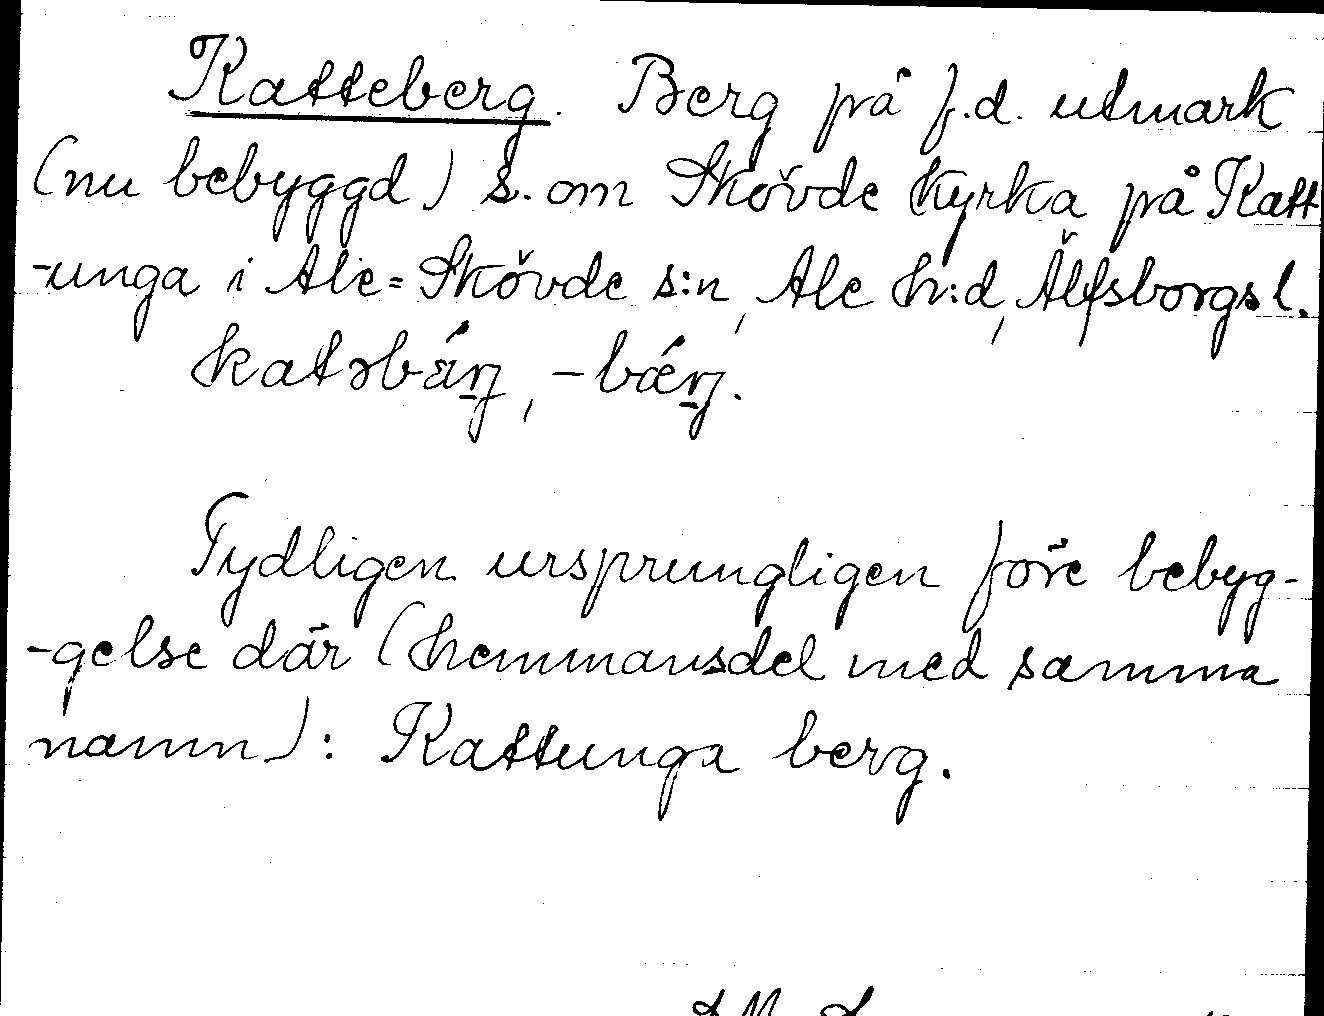 Katteberg. Berg på f.d. utmark
(nu bebyggd) s. om Skövde kyrka på Katt
-unga i Ale=Skövde s:n, Ale h:d, Älfsborgs l.
katəbárŋ, -bǽrŋ.
Tydligen ursprungligen före bebyg-
-gelse där (hemmansdel med samma
namn): Kattunga berg.